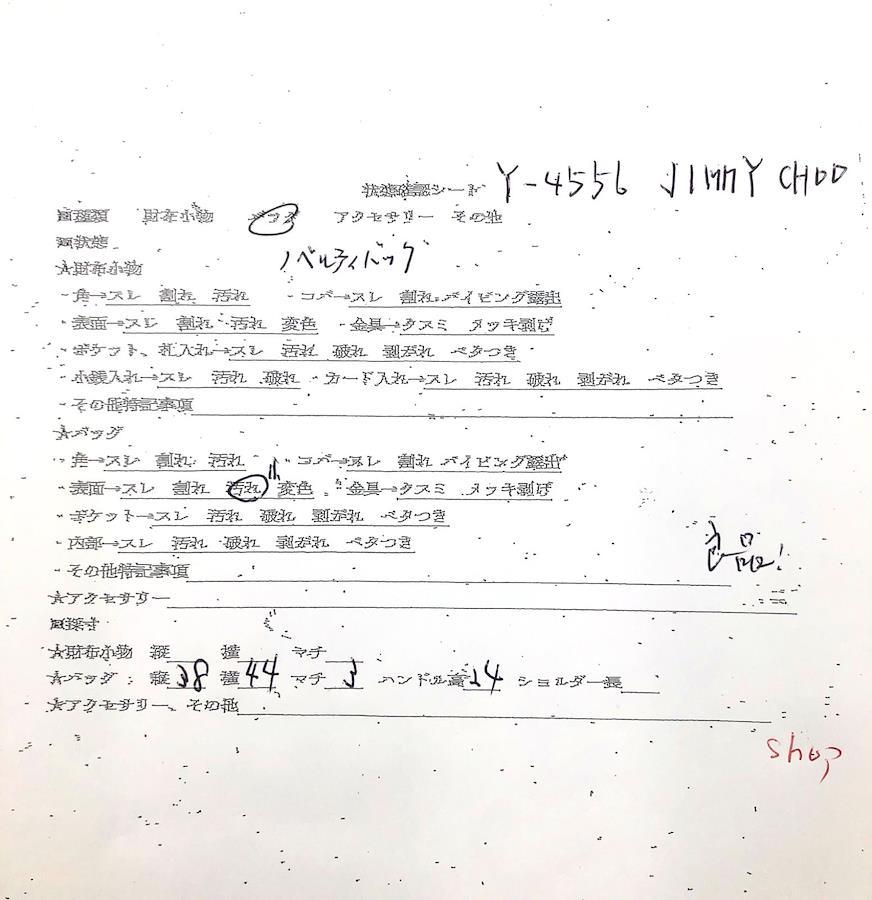 状態確認シート Y-4556 JIMMY CHOO
■種類 財布小物 バッグ アクセサリー その他
■状態 ノベルティバッグ
★財布小物
・角→スレ 割れ 汚れ ・コバ→スレ 割れ パイピング露出
・表面→スレ 割れ 汚れ 変色 ・金具→クスミ メッキ剥げ
・ポケット、札入れ→スレ 汚れ 破れ 剥がれ ベタつき
・小銭入れ→スレ 汚れ 破れ ・カード入れ→スレ 汚れ 破れ 剥がれ ベタつき
・その他特記事項
★バッグ
・角→スレ 割れ 汚れ ・コバ→スレ 割れ パイピング露出
・表面→スレ 割れ 汚れ 小 変色 ・金具→クスミ メッキ剥げ
・ポケット→スレ 汚れ 破れ 剥がれ ベタつき
・内部→スレ 汚れ 破れ 剥がれ ベタつき
良品!
・その他特記事項
★アクセサリー
■採寸
★財布小物 縦 横 マチ
★バッグ: 縦 38 横 44 マチ 3 ハンドル高 24 ショルダー長
★アクセサリー、その他
shop